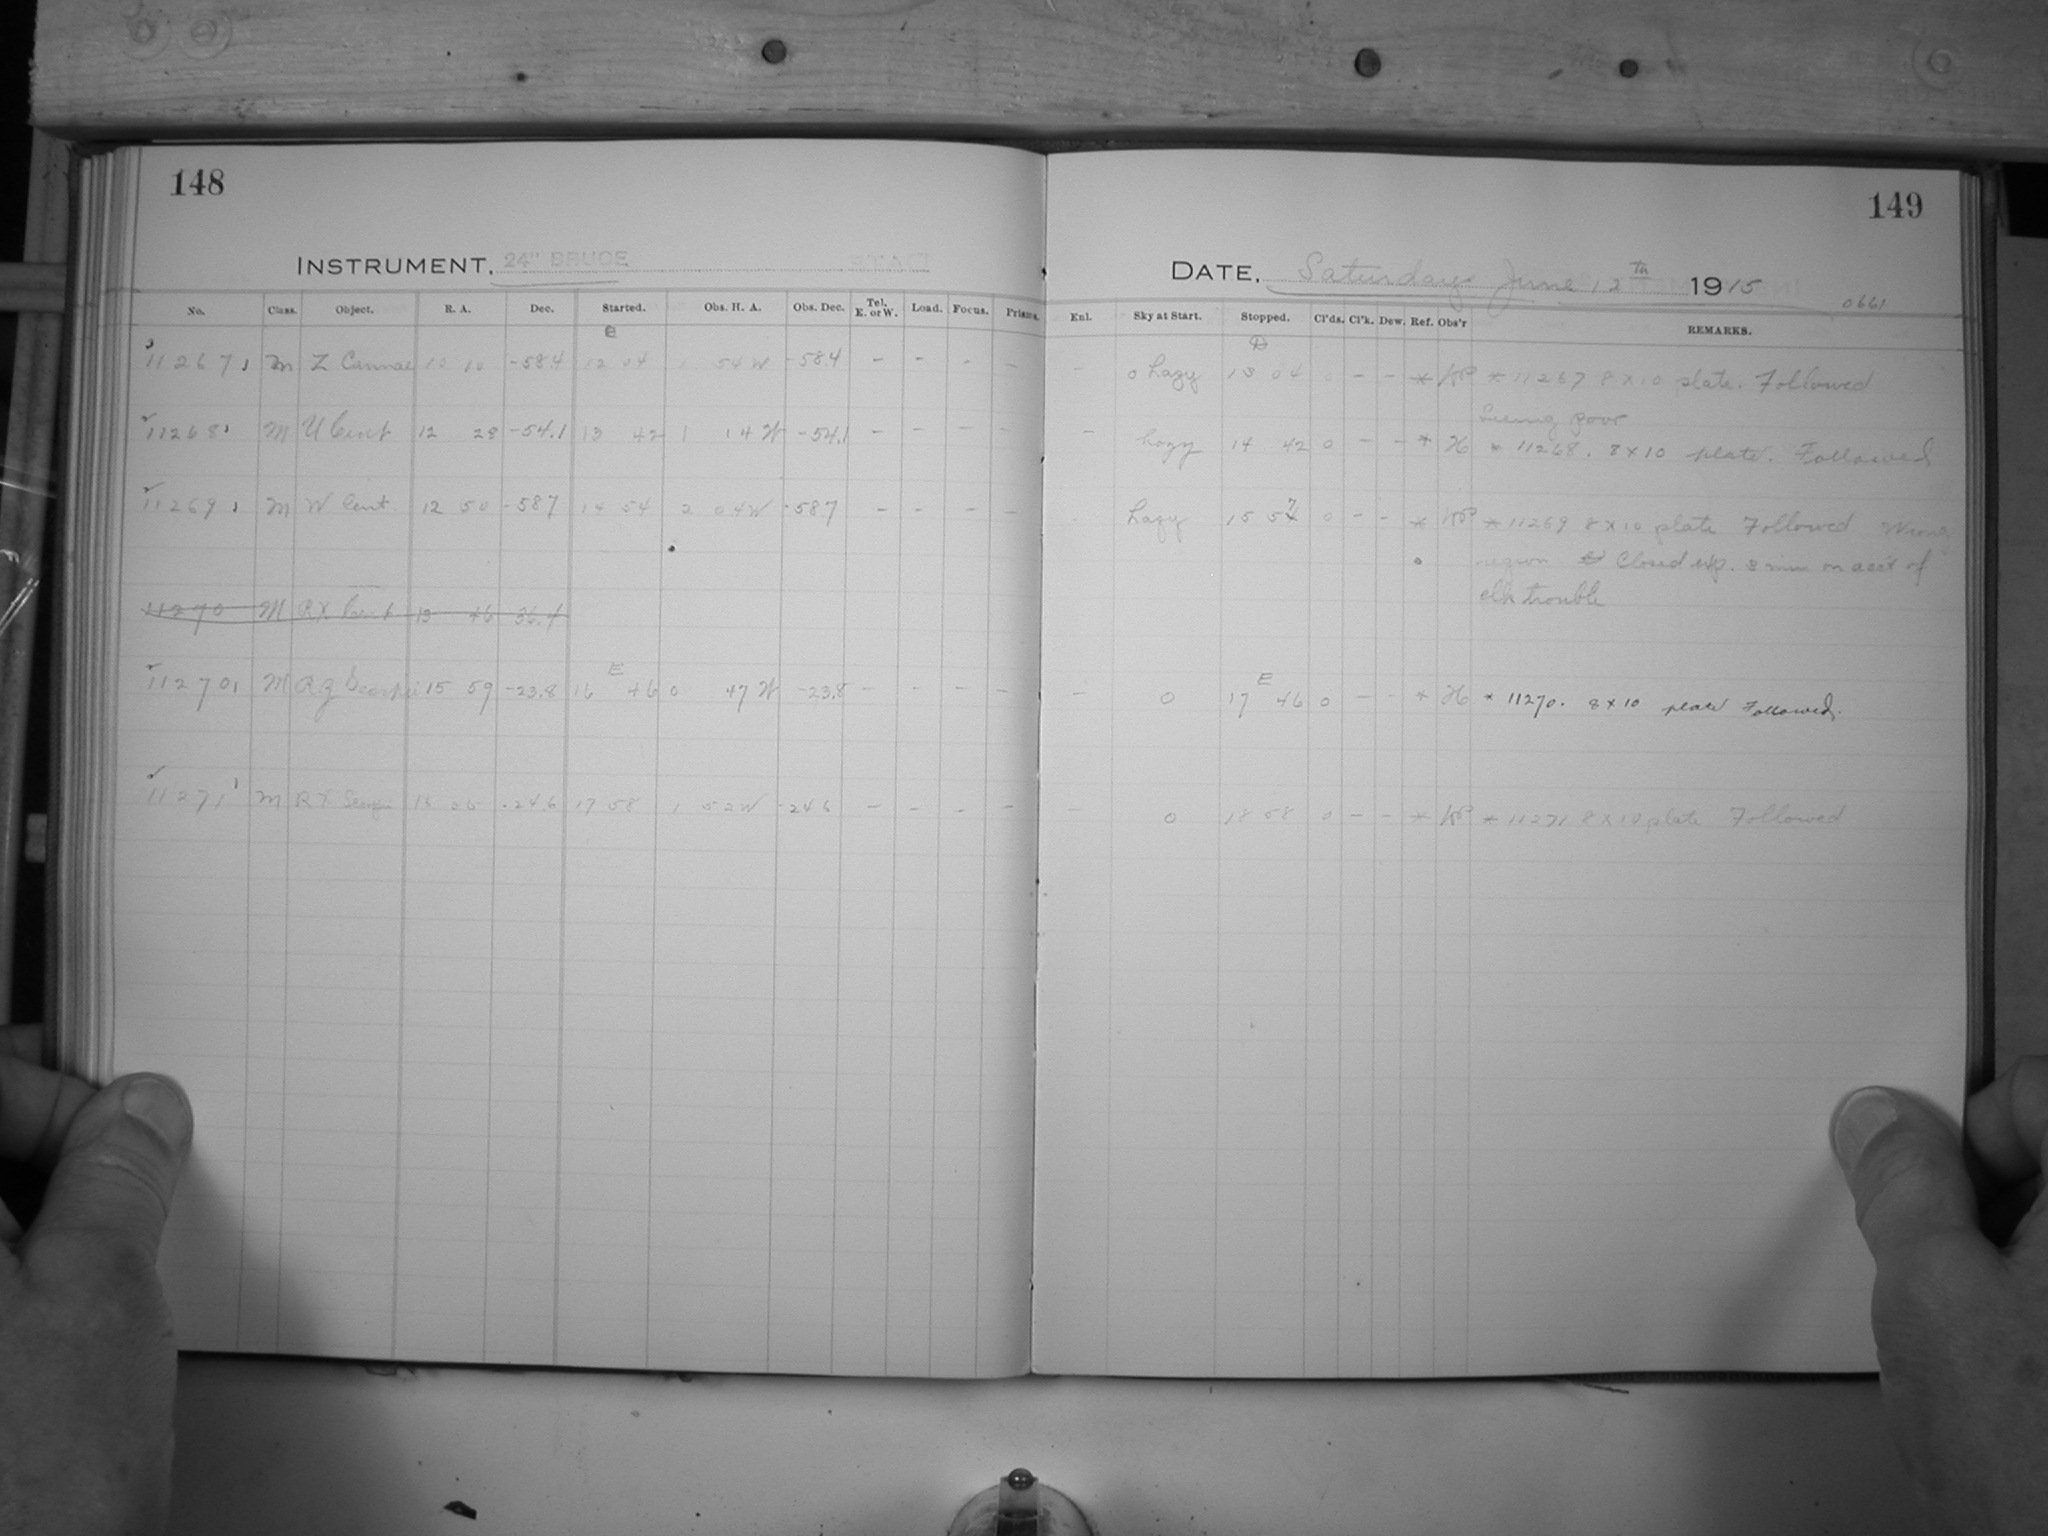 148
149
INSTRUMENT, 24" BRUCE
DATE, Saturday June 12th 1915
0661
No. Class. Object. R. A. Dec. Started. Obs. H. A. Obs. Dec. Tel. E. or W. Load. Focus. Prisms. Enl. Sky at Start. Stopped. Cl'ds. Cl'k. Dew. Ref. Obs'r REMARKS.
11267 M Z Carinae 10 10 -58.4 12 04 1 54 W -58.4 - - - - - 0 hazy 13 04 0 - - * * 11267 8x10 plate. Followed
Seeing poor
11268 M U Cent 12 28 -54.1 13 42 1 14 W -54.1 - - - - - hazy 14 42 0 - - * H * 11268. 8x10 plate. Followed
11269 M W Cent. 12 50 -58.7 14 54 2 04 W -58.7 - - - - hazy 15 57 0 - - * * 11269 8x10 plate Followed Wrong
region Closed exp. 3 min on acc't of
clk trouble
11270 M RX Cent 13 46 36.4
E E
11270 M RZ Scorpii 15 59 -23.8 16 46 0 47 W -23.8 - - - - - 0 17 46 0 - - * H * 11270. 8x10 plate Followed.
11271 M -24.6 17 58 1 52 W -24.6 - - - - - 0 18 58 0 - - * * 11271 8x10 plate Followed